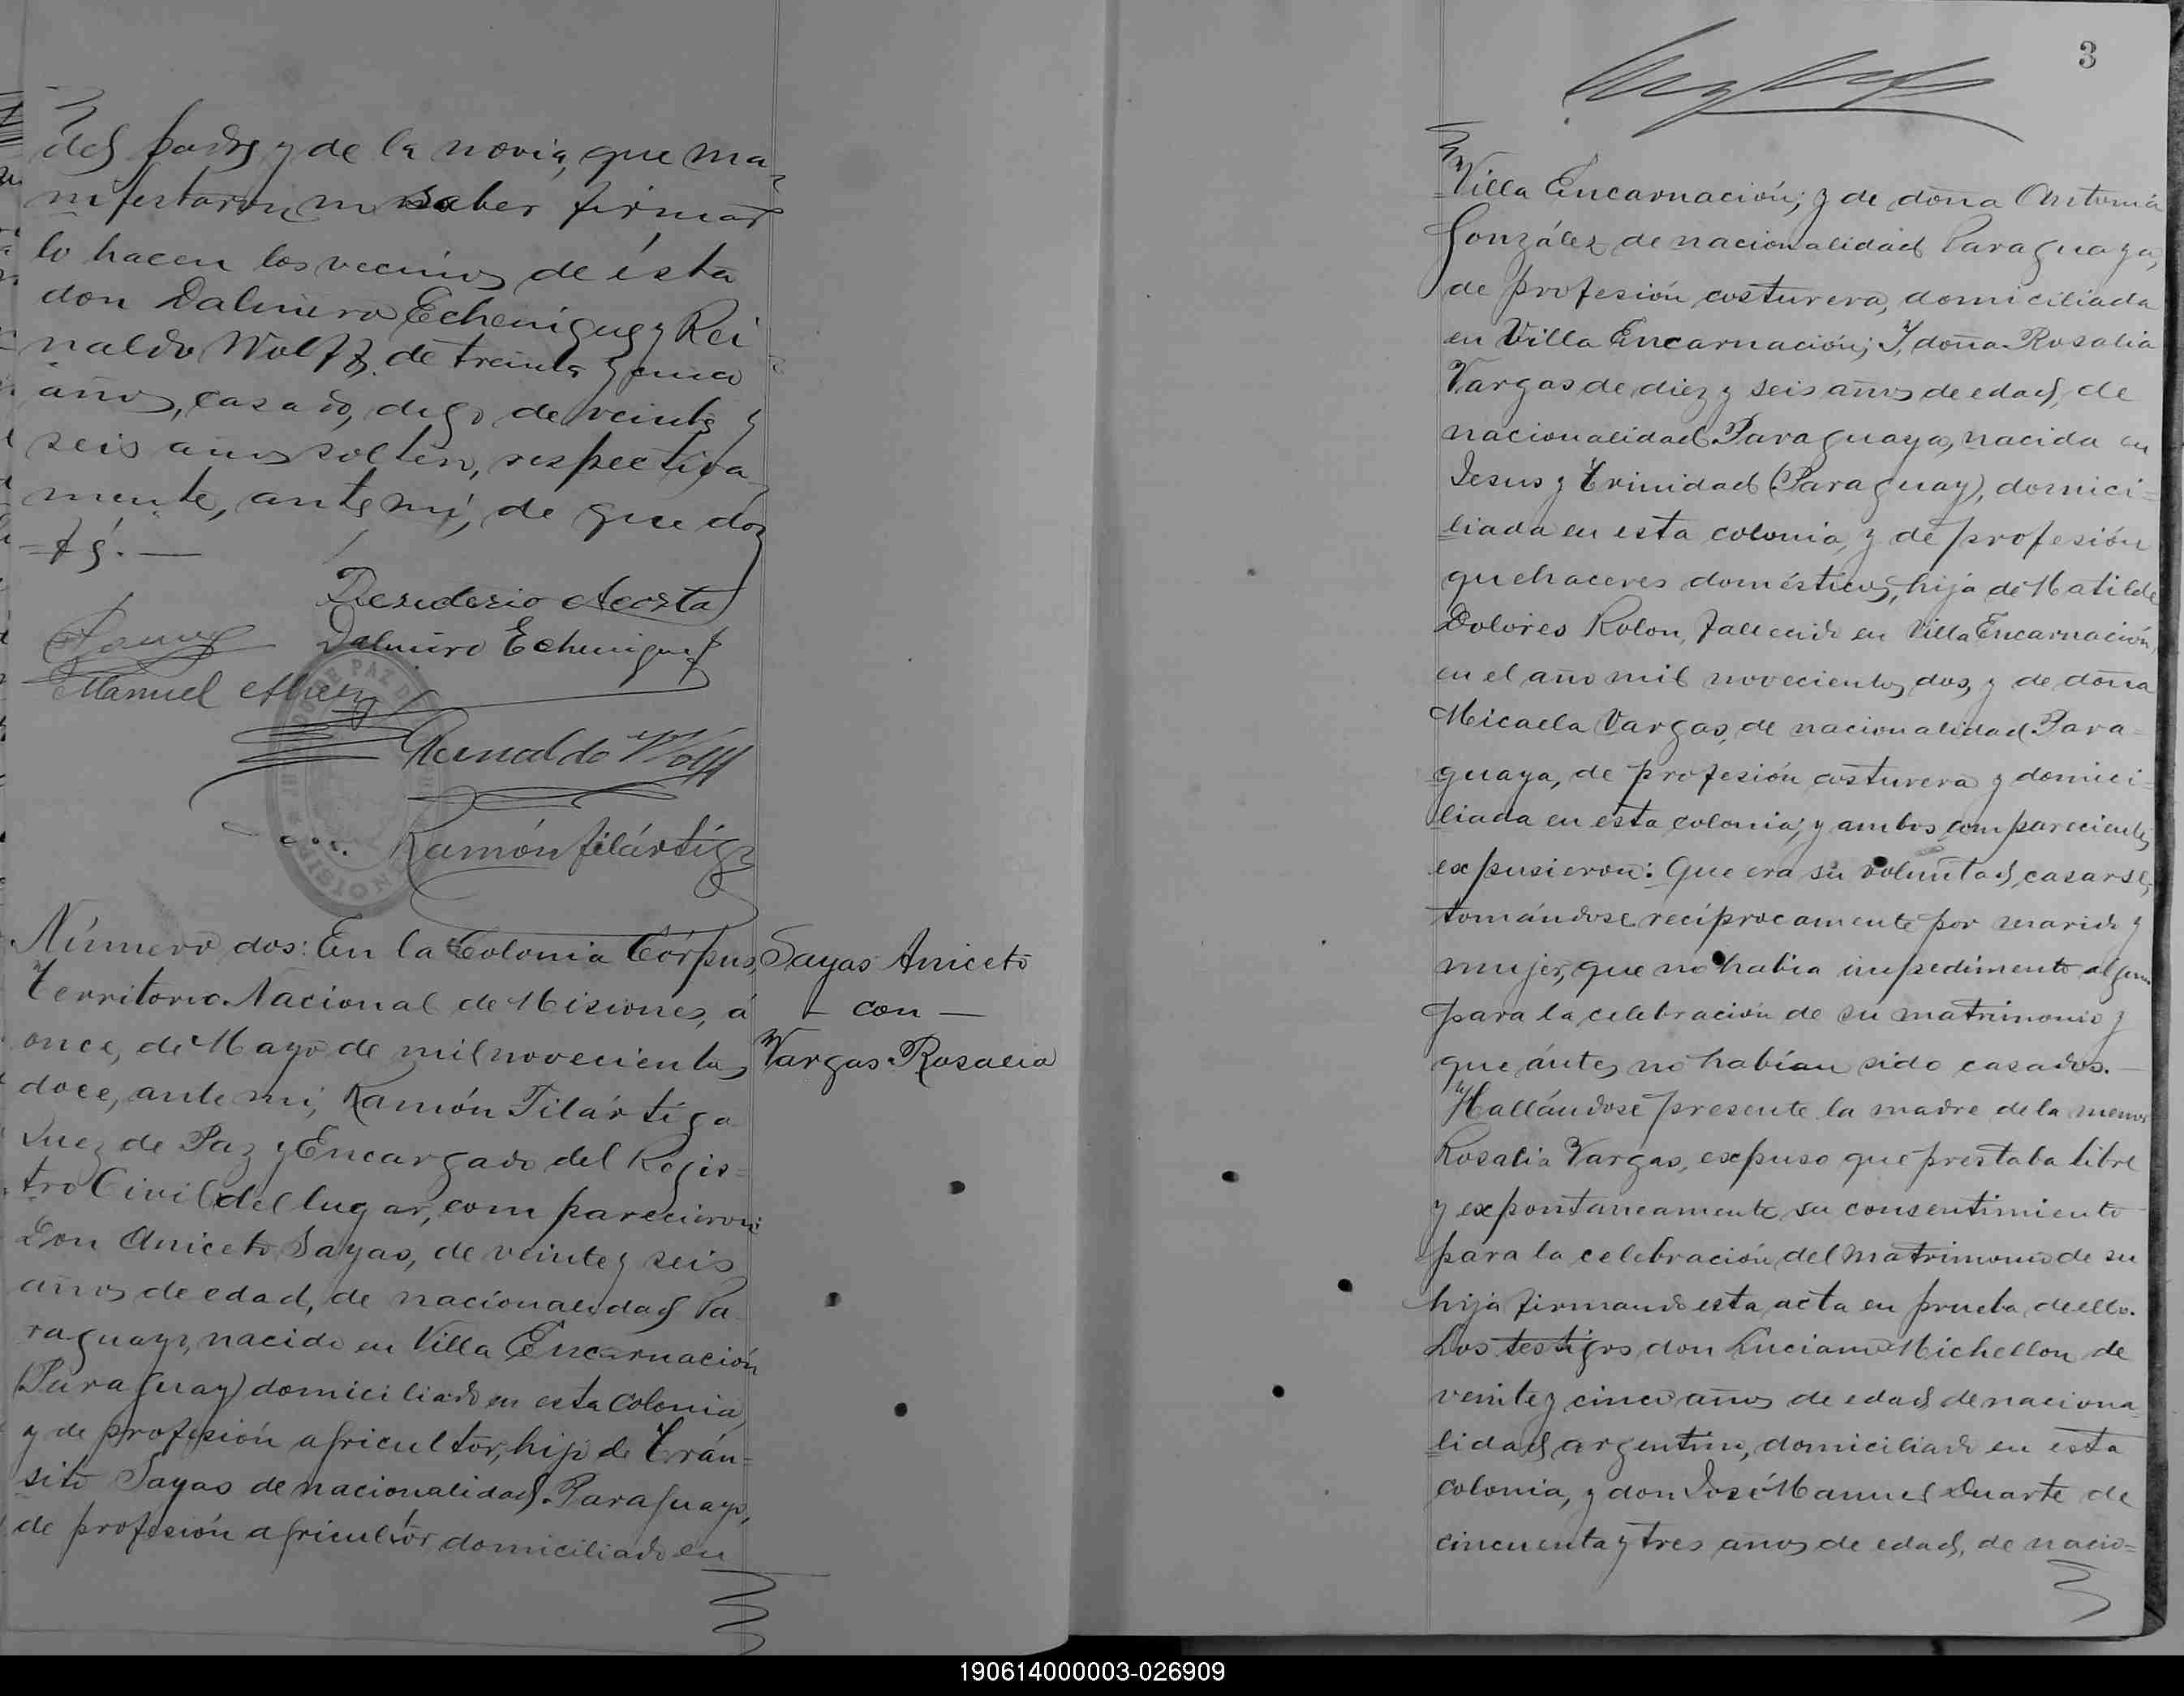 del padre y de la novia, que ma
nifestaron no saber firmar
lo hacen los vecinos de ésta
don Dalmiro Echenique y Rei
naldo Wolff, de treinta y cinco
años, casado, digo de veinte y
seis años soltero, respectiva
mente, ante mí, de que doy
fé. —
Desiderio Acosta
Dalmiro Echenique
Manuel
Reinaldo Wolff
Ramón Filártiga
Número dos: En la Colonia Córpus,
Territorio Nacional de Misiones, á
once, de Mayo de mil novecientos
doce, ante mi, Ramón Filártiga
Juez de Paz y Encargado del Regis=
tro Civil del lugar, comparecieron:
Don Aniceto Sayas, de veinte y seis
años de edad, de nacionalidad Pa
raguayo, nacido en Villa Encarnación
(Paraguay) domiciliado en esta Colonia,
y de profesión agricultor, hijo de Trán=
sito Sayas de nacionalidad Paraguayo,
de profesión agricultor domiciliado en
Sayas Aniceto
— con —
Vargas Rosalia
3
Villa Encarnación; y de doña Antonia
González de nacionalidad Paraguaya,
de profesión costurera, domiciliada
en Villa Encarnación; Y, doña Rosalia
Vargas de diez y seis años de edad, de
nacionalidad Paraguaya, nacida en
Jesus y Trinidad (Paraguay), domici=
liada en esta colonia, y de profesión
quehaceres domésticos, hija de Matilde
Dolores Rolon, fallecido en Villa Encarnación,
en el año mil novecientos dos, y de doña
Micaela Vargas, de nacionalidad Para=
guaya, de profesión costurera y domici=
liada en esta colonia; y ambos comparecientes
expusieron: Que era su voluntad, casarse,
tomándose recíprocamente por marido y
mujer, que no habia impedimento alguno
para la celebración de su matrimonio y
que ántes no habían sido casados. —
Hallándose presente la madre de la menor
Rosalia Vargas, expuso que prestaba libre
y expontaneamente su consentimiento
para la celebración del matrimonio de su
hija firmando esta acta en prueba de ello.
Los testigos don Luciano Michellon de
veinte y cinco años de edad de naciona=
lidad argentino, domiciliado en esta
colonia, y don José Manuel Duarte de
cincuenta y tres años de edad, de nacio=
190614000003-026909